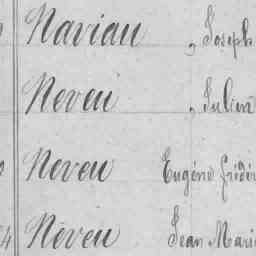 Naviau , Joseph
Neveu , Julien
Neveu Eugène
4 Néveu Jean Marie